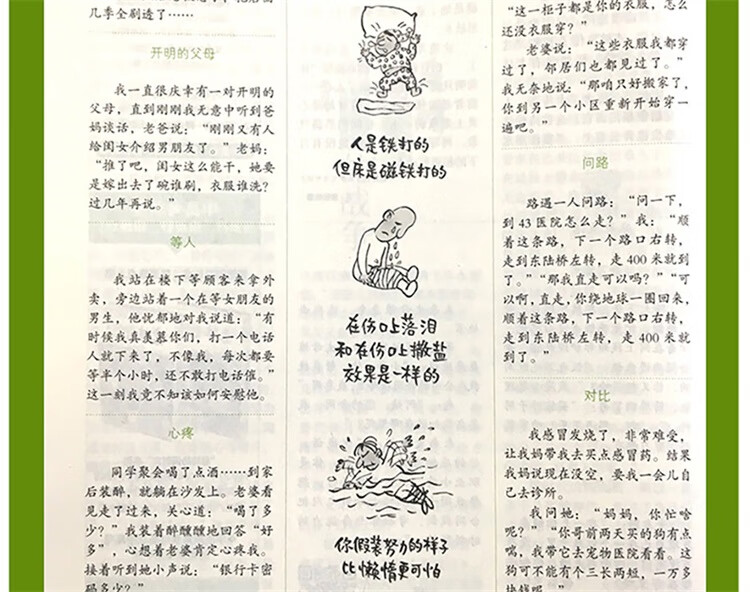 几季全刷透了……
开明的父母
我一直很庆幸有一对开明的
父母，直到刚刚我无意中听到爸
妈谈话，老爸说：“刚刚又有人
给闺女介绍男朋友了。”老妈：
“推了吧，闺女这么能干，她要
是嫁出去了碗谁刷，衣服谁洗？
过几年再说。”
等人
我站在楼下等顾客来拿外
卖，旁边站着一个在等女朋友的
男生，他忧郁地对我说道：“有
时候我真羡慕你们，打一个电话
人就下来了，不像我，每次都要
等半个小时，还不敢打电话催。”
这一刻我竟不知该如何安慰他。
心疼
同学聚会喝了点酒……到家
后装醉，就躺在沙发上。老婆看
见走了过来，关心道：“喝了多
少？”我装着醉醺醺地回答“好
多”，心想着老婆肯定心疼我。
接着听到她小声说：“银行卡密
码多少？”
人是铁打的
但床是磁铁打的
在伤口上落泪
和在伤口上撒盐
效果是一样的
你假装努力的样子
比懒惰更可怕
“这一柜子都是你的衣服，怎么
还没衣服穿？”
老婆说：“这些衣服我都穿
过了，邻居们也都见过了。”
我无奈地说：“那咱只好搬家了，
你到另一个小区重新开始穿一
遍吧。”
问路
路遇一人问路：“问一下，
到 43 医院怎么走？”我：“顺
着这条路，下一个路口右转，
走到东陆桥左转，走 400 米就到
了。”“那我直走可以吗？”“可
以啊，直走，你绕地球一圈回来，
顺着这条路，下一个路口右转，
走到东陆桥左转，走 400 米就
到了。”
对比
我感冒发烧了，非常难受，
让我妈带我去买点感冒药。结果
我妈说现在没空，要我一会儿自
己去诊所。
我问她：“妈妈，你忙啥
呢？”“你哥前两天买的狗有点
喘，我带它去宠物医院看看。这
狗可不能有个三长两短，一万多
块钱呢。”